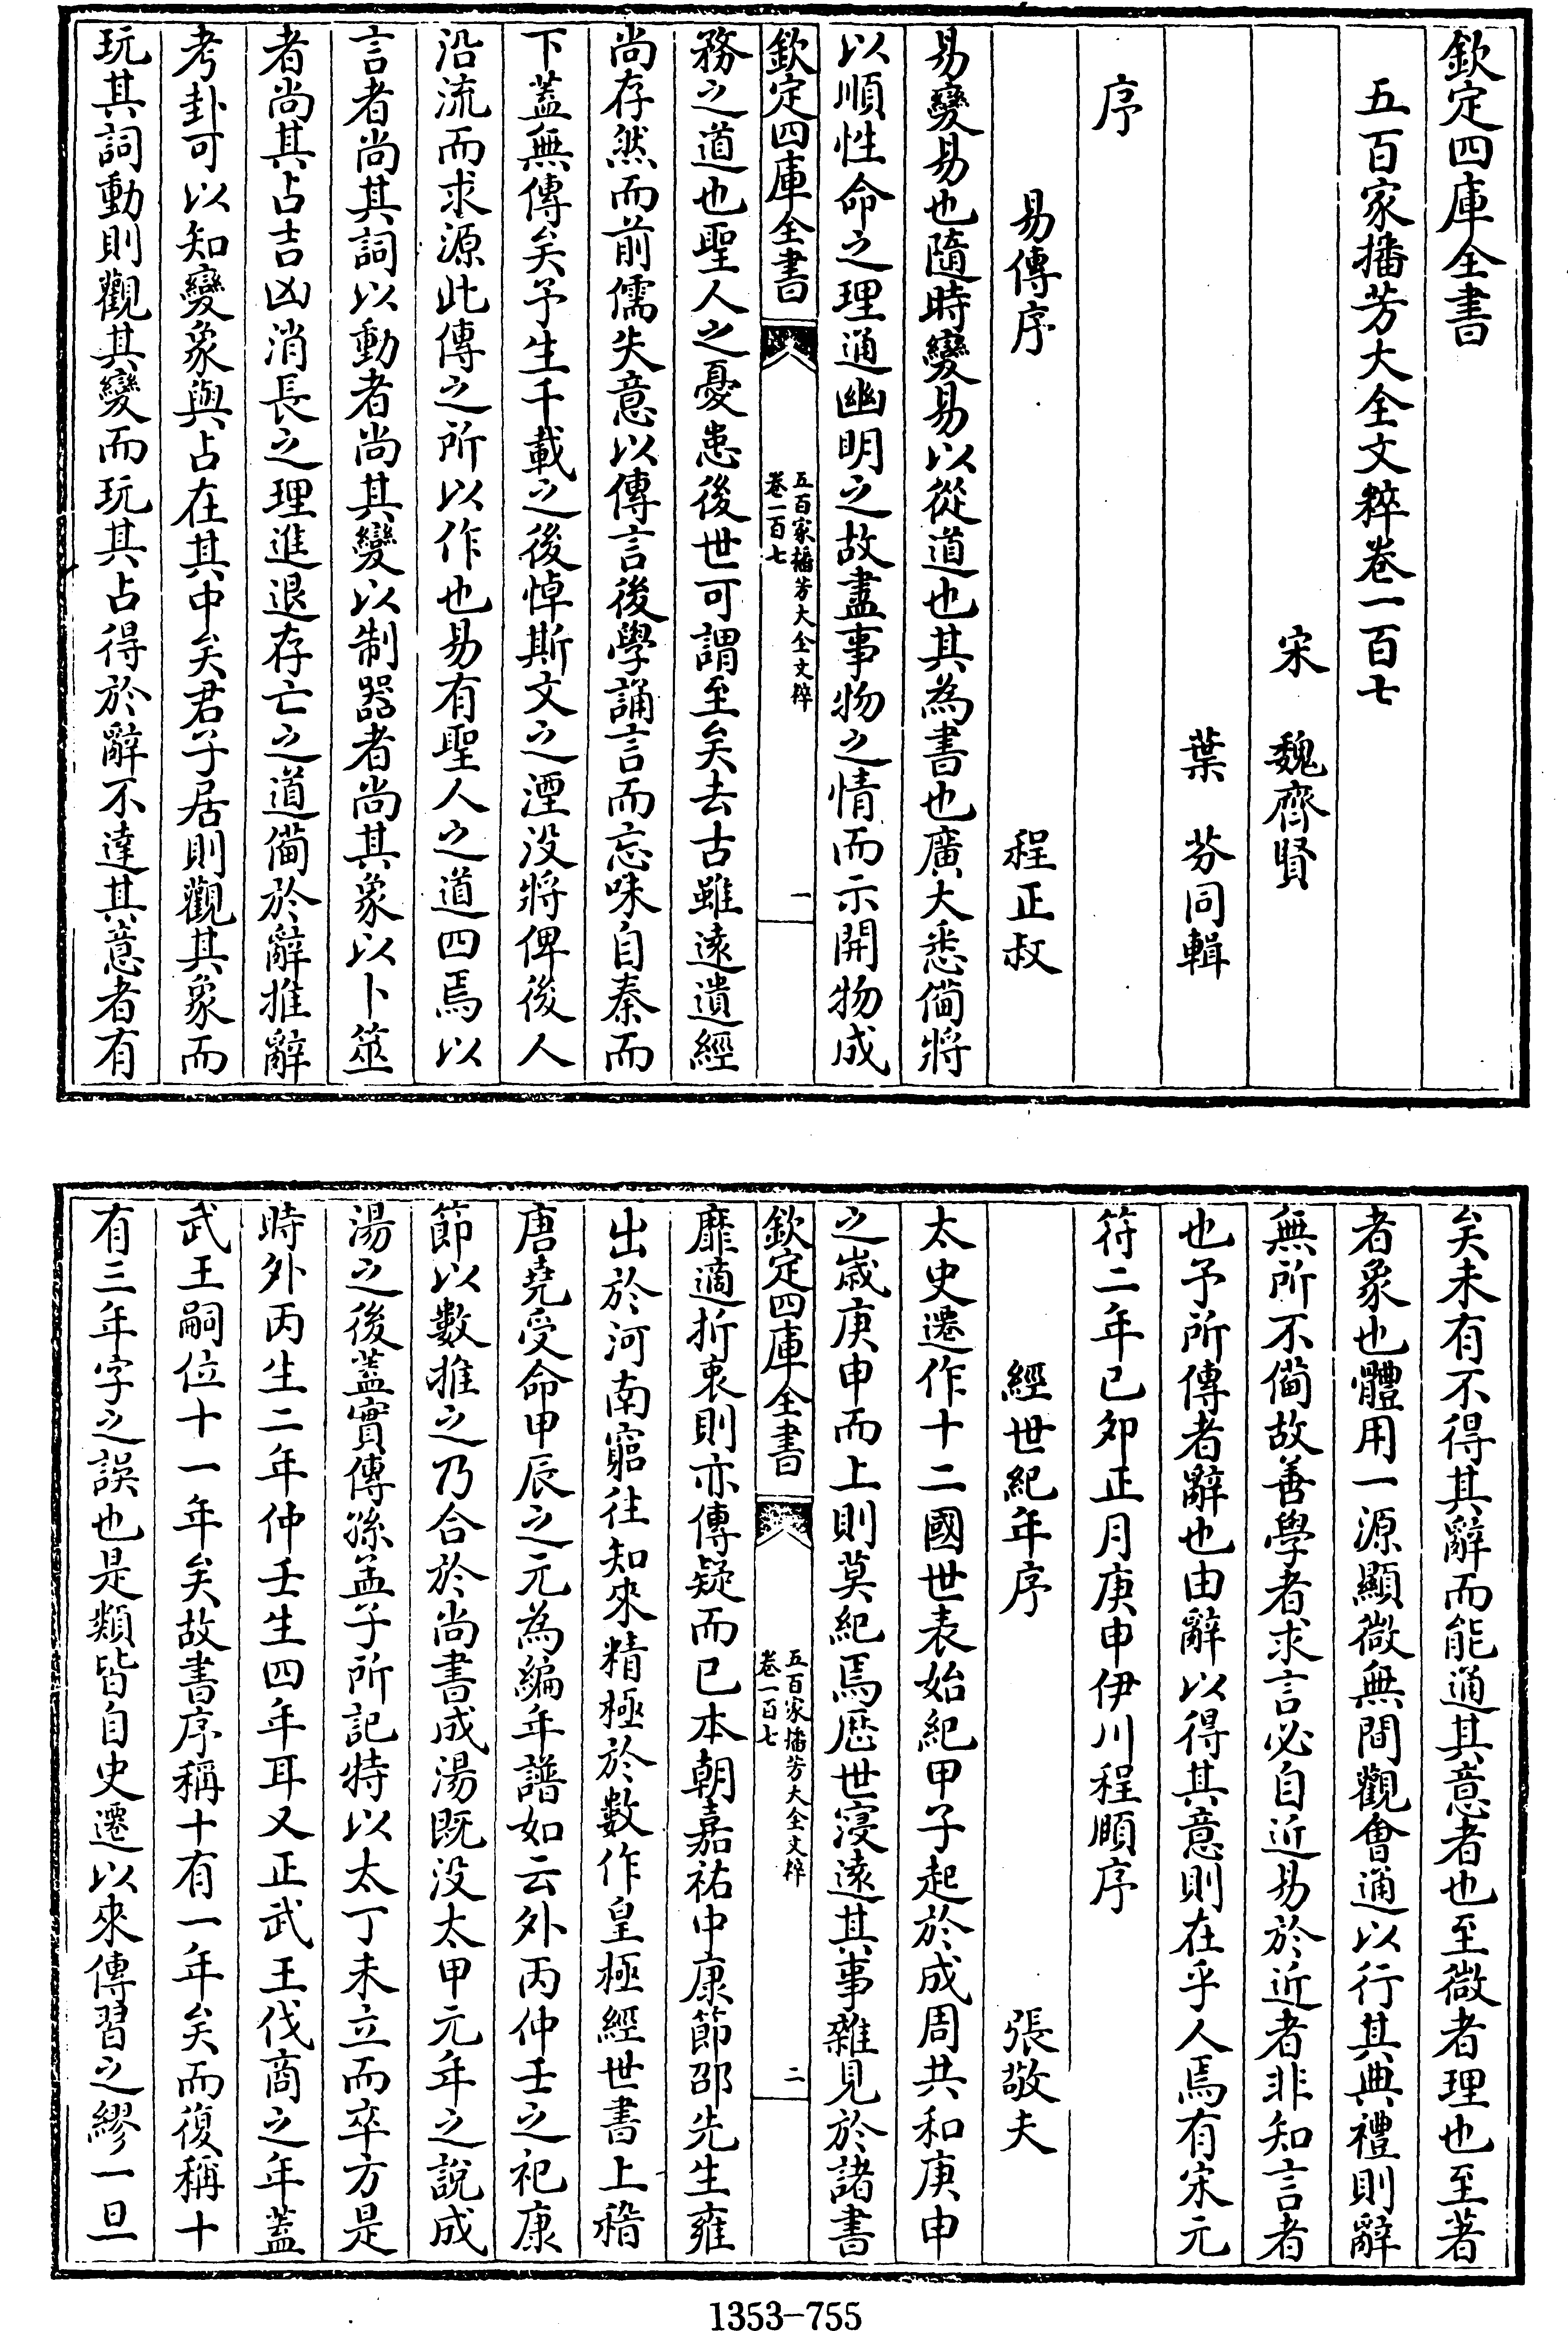 欽定四庫全書
五百家播芳大全文粹卷一百七
宋　魏齊賢
葉　芬同輯
序
易傳序　程正叔
易變易也隨時變易以從道也其為書也廣大悉備將
以順性命之理通幽明之故盡事物之情而示開物成
欽定四庫全書
五百家播芳大全文粹
卷一百七
一
務之道也聖人之憂患後世可謂至矣去古雖遠遺經
尚存然而前儒失意以傳言後學誦言而忘味自秦而
下蓋無傳矣予生千載之後悼斯文之湮没將俾後人
沿流而求源此傳之所以作也易有聖人之道四焉以
言者尚其詞以動者尚其變以制器者尚其象以卜筮
者尚其占吉凶消長之理進退存亡之道備於辭推辭
考卦可以知變象與占在其中矣君子居則觀其象而
玩其詞動則觀其變而玩其占得於辭不達其意者有
矣未有不得其辭而能通其意者也至微者理也至著
者象也體用一源顯微無間觀會通以行其典禮則辭
無所不備故善學者求言必自近易於近者非知言者
也予所傳者辭也由辭以得其意則在乎人焉有宋元
符二年已夘正月庚申伊川程頤序
經世紀年序　張敬夫
太史遷作十二國世表始紀甲子起於成周共和庚申
之歳庚申而上則莫紀焉歴世寖遠其事雜見於諸書
欽定四庫全書
五百家播芳大全文粹
卷一百七
二
靡適折衷則亦傳疑而已本朝嘉祐中康節邵先生雍
出於河南窮往知來精極於數作皇極經世書上稽
唐堯受命甲辰之元為編年譜如云外丙仲壬之祀康
節以數推之乃合於尚書成湯既没太甲元年之說成
湯之後蓋實傳孫孟子所記特以太丁未立而卒方是
時外丙生二年仲壬生四年耳又正武王伐商之年蓋
武王嗣位十一年矣故書序稱十有一年矣而復稱十
有三年字之誤也是類皆自史遷以來傳習之繆一旦
1353-755